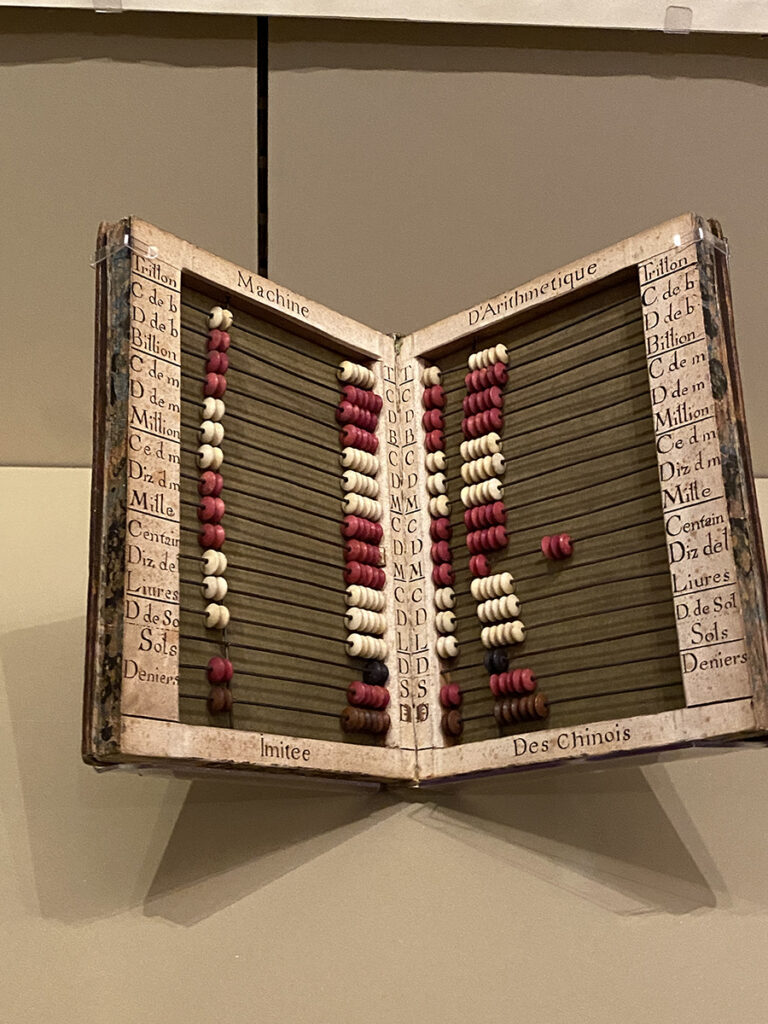 Machine
Trillon
C de b
D de b
Billion
C de m
D de m
Million
C e d m
Diz d m
Mille
Centain
Diz de l
Liures
D de So
Sols
Deniers
T
C
D
B
C
D
M
C
D
M
C
D
L
D
S
Imitee
D'Arithmetique
T
C
D
B
C
D
M
C
D
M
C
D
L
D
S
Trillon
C de b
D de b
Billion
C de m
D de m
Million
C e d m
Diz d m
Mille
Centain
Diz de l
Liures
D. de Sol
Sols
Deniers
Des Chinois